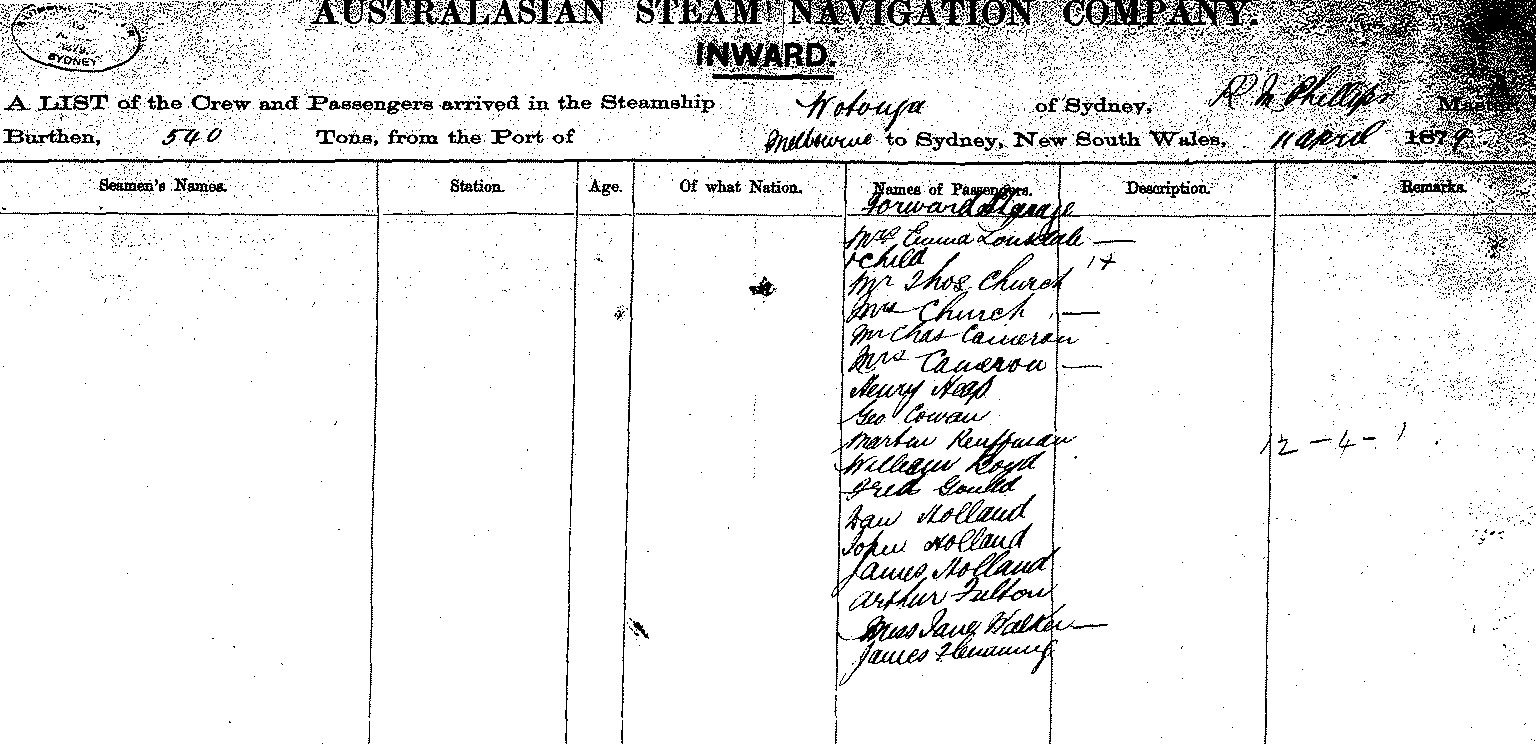 AUSTRALASIAN STEAM NAVIGATION COMPANY.
SYDNEY
INWARD.
A LIST of the Crew and Passengers arrived in the Steamship Wotonga of Sydney, R M Phillips Master
Burthen, 540 Tons, from the Port of Melbourne to Sydney, New South Wales, 11 April 1879.
Seamen's Names. Station. Age. Of what Nation. Names of Passengers. Description. Remarks.
Forward Sterage
Mrs Emma Lonsdale —
+ child 1 +
Mr Thos Church
Mrs Church —
Mr Chas Cameron
Mrs Cameron —
Henry Heap
Geo Cowan
Martin Kauffman 12 - 4 - 1
William Boyd
Fred Gould
Dan Holland
John Holland
James Holland
Arthur Fulton
Miss Jane Walker —
James Flemming